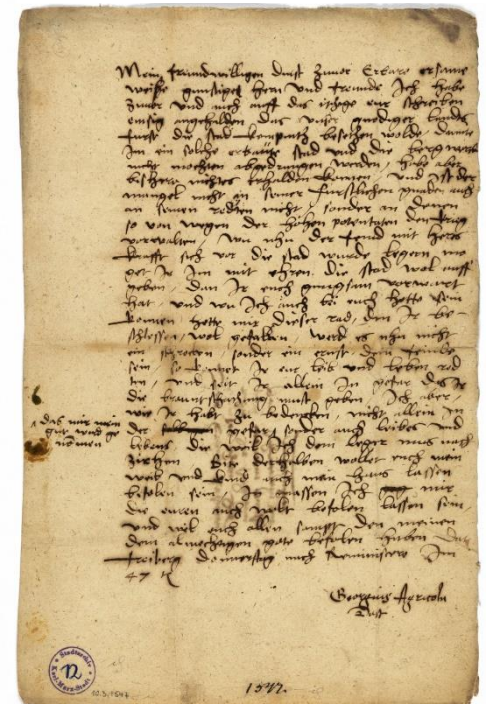 Mein freundwilligen dinst zuuor Erbare ersame
weisse gunstigen hern und freunde Ich habe
zuuor und auch auff das itzige eur schreiben
emsig angehalden das unser gnediger landes
furst die stad kempnitz besetzen wolde, damit
Im ein solche stad und die bergwerck
nicht mochten abgedrungen werden, habe aber
bisher nichtes erhalden konnen, und ist der
mangel nicht an seiner furstlichen gnaden auch
an seinen redten nicht, sonder an denen
so von wegen der hohen potentaten den krig
vorwalten, wu nhu der feind mit heres
krafft sich vor die stad wurde legern mo
get ir im mit ehren die stad wol auff
geben, dan Ir euch gnugsam vorwart
hat, und wu Ich auch bei euch hette sein
konnen hette mir dieser rad, den ir be-
schlossen, wol gefallen, werd es nhu nicht
ein schrecken, sonder ein ernst dem feinde
sein so konnet ir eur leib und leben red
ten, und seit ir allein In gefar das ir
die brantschatzung must geben, Ich aber,
wie ir habt zu bedencken, nicht allein in
das mir mein
gut wird ge
nomen
der gefar sonder auch leibes und
lebens die weil Ich dem leger mus nach
zihen Bitte derhalben wollet euch mein
weib und kind auch mein haus lassen
befolen sein, Ir massen Ich mir
die euren auch wolt befolen lassen sein
und wil euch allen sampt den meinen
dem almechtigen gote befolen haben Dat
freiberg donnerstag nach Reminiscere Im
47
Georgius Agricola
1547.
Stadtarchiv
Karl-Marx-Stadt
12
10.3.1547